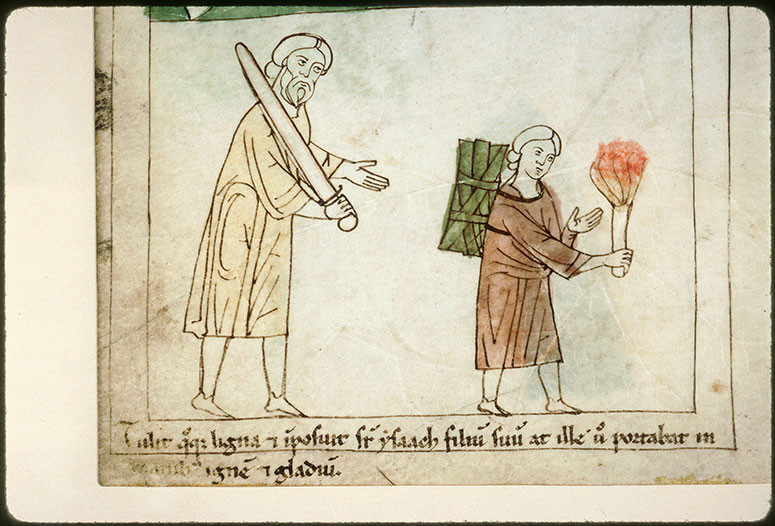 Tulit q̊q; ligna ⁊ īposuit sr̄ ẏsaach filiū suū at ille u̇̊ portabat in
manib; ignē ⁊ gladiū.